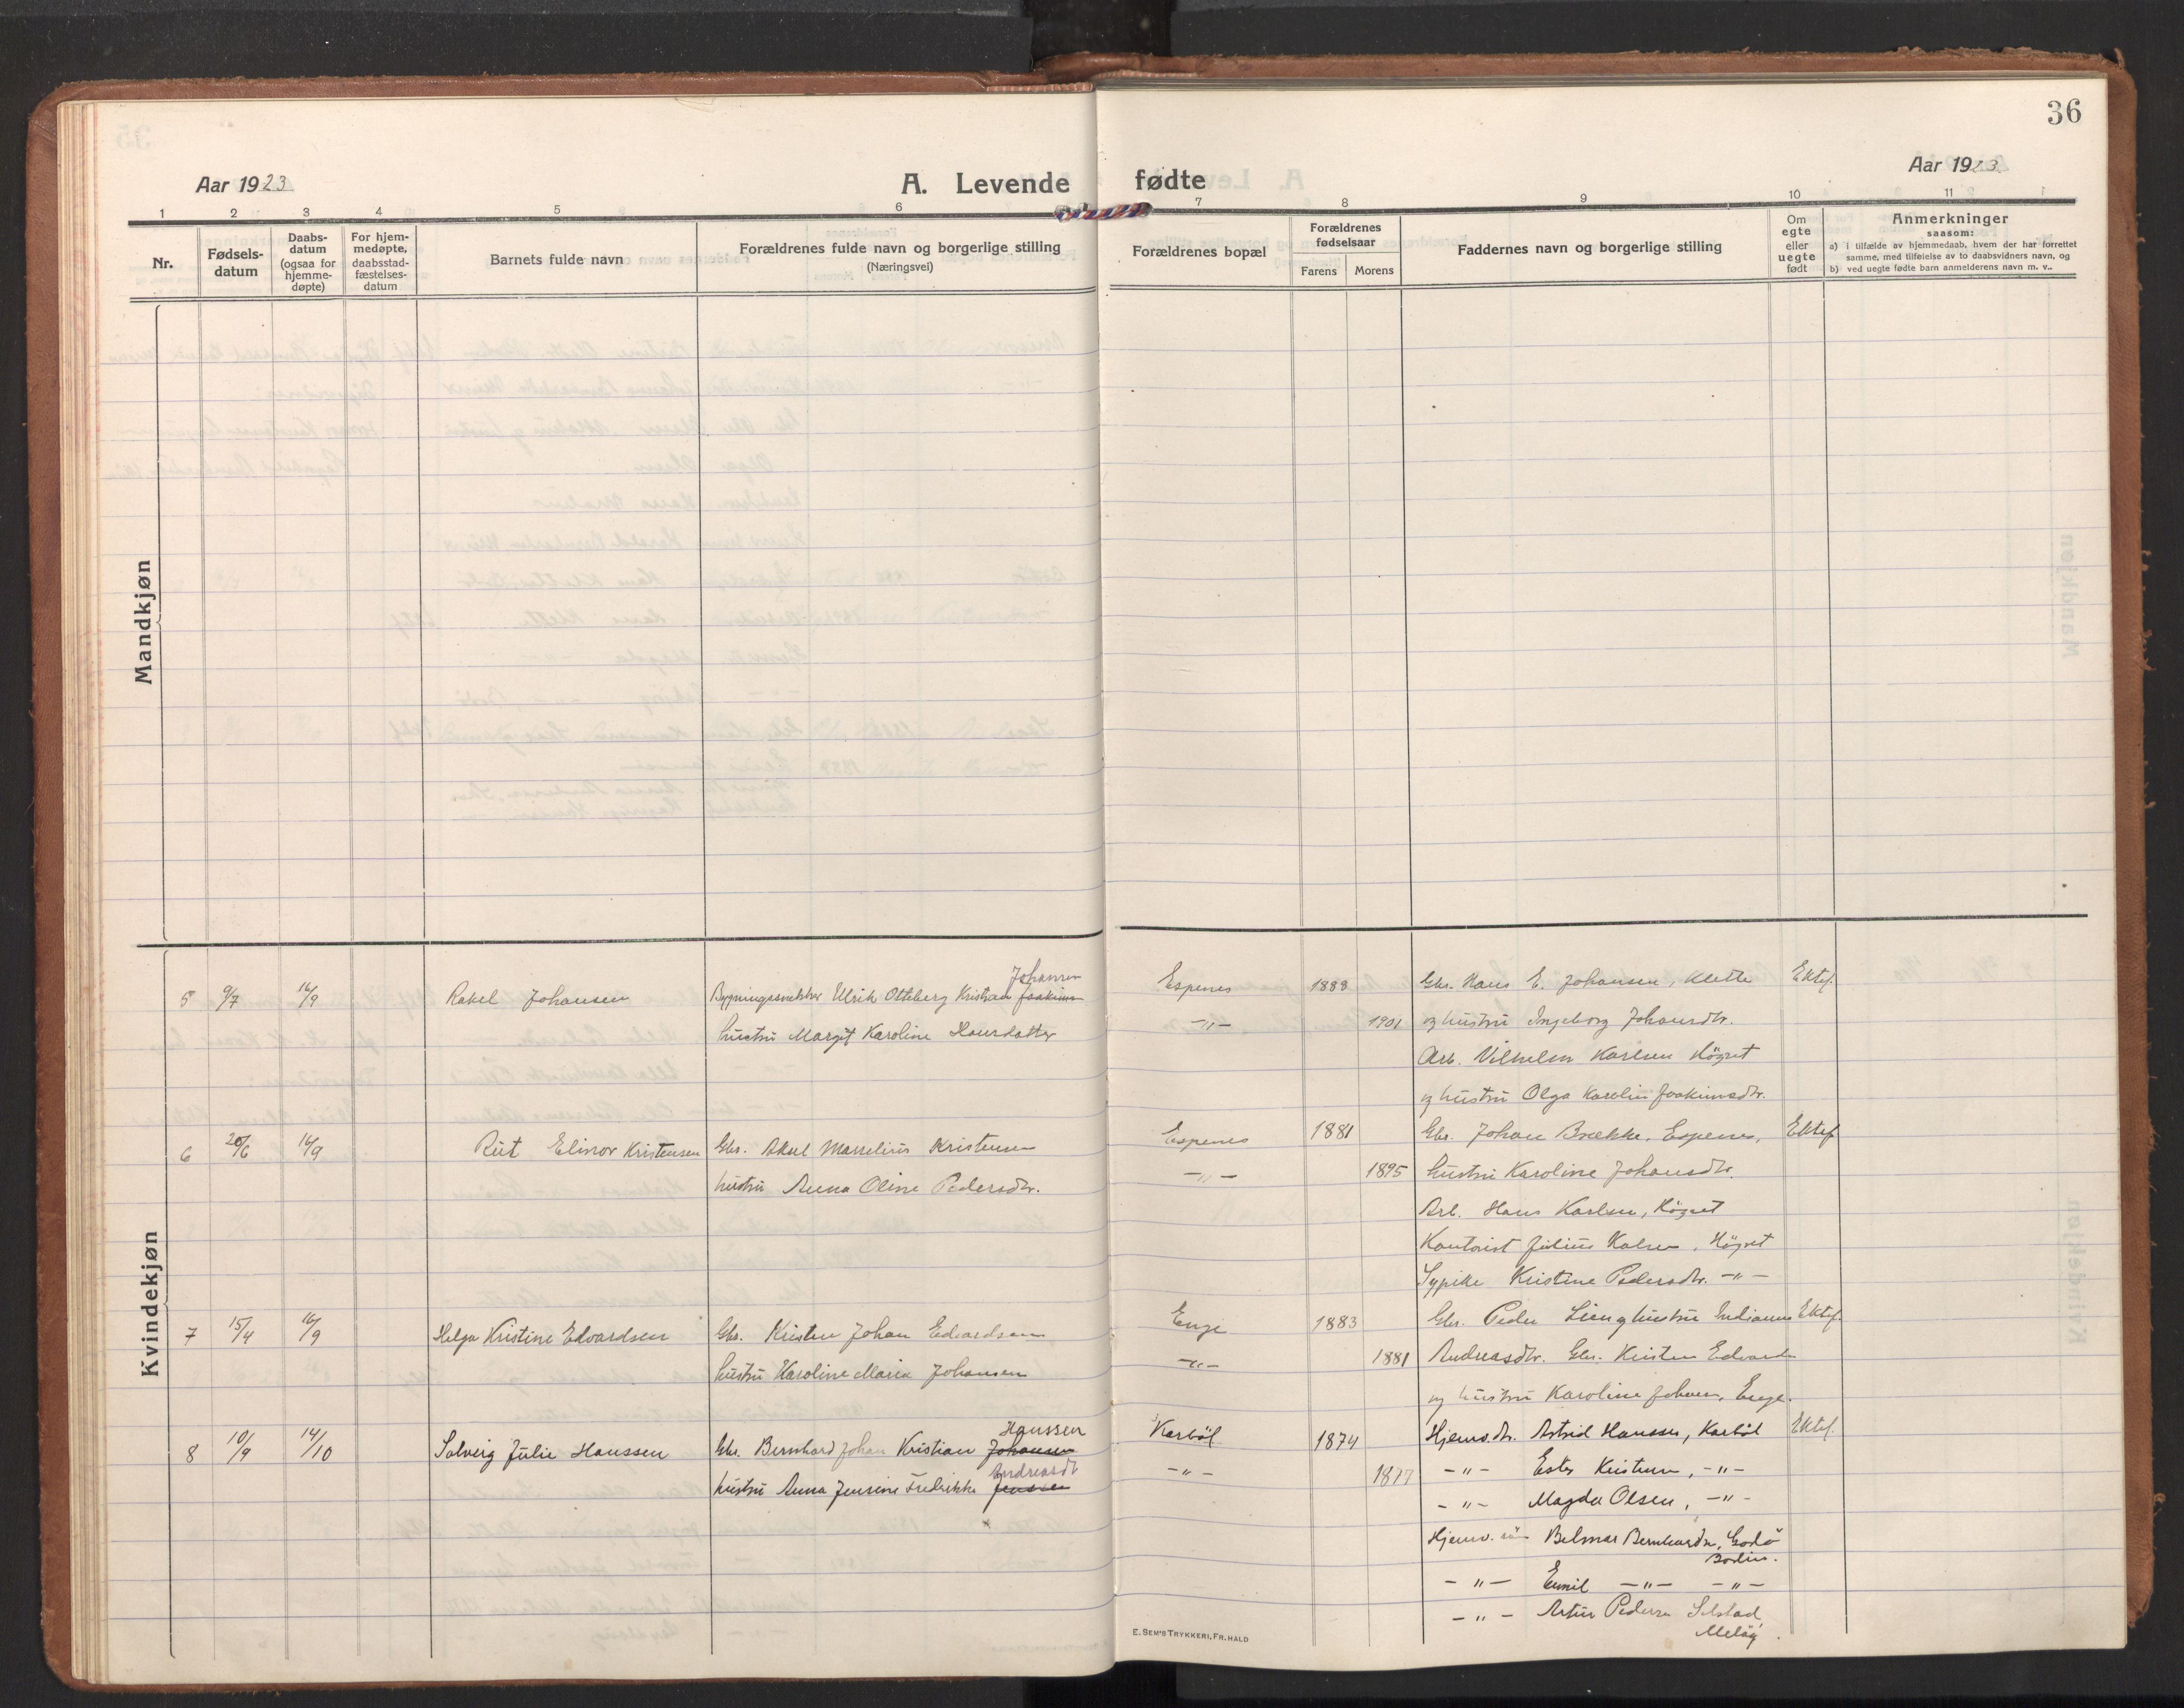 36
Aar 1923
A. Levende fødte
Aar 1923.
1 2 3 4 5 6 7 8 9 10 11
Nr.
Fødsels-
datum
Daabs-
datum
(ogsaa for
hjemme-
døpte)
For hjem-
medøpte,
daabsstad-
fæstelses-
datum
Barnets fulde navn
Forældrenes fulde navn og borgerlige stilling
(Næringsvei)
Forældrenes bopæl
Forældrenes
fødselsaar
Farens Morens
Faddernes navn og borgerlige stilling
Om
egte
eller
uegte
født
Anmerkninger
saasom:
a) i tilfælde av hjemmedaab, hvem der har forrettet
samme, med tilføielse av to daabsvidners navn, og
b) ved uegte fødte barn anmelderens navn m. v..
Mandkjøn
Kvindekjøn
5 9/7 16/9 Rakel Johansen
Johansen
Bygningssnekker Ulrik Otteberg Kristian Joakims
hustru Margit Karoline Hansdatter
Espenes 1888
-"- 1901
Gbr. Hans E. Johansen, Klette Ektef.
og hustru Ingeborg Johansdtr.
Arb. Vilhelm Karlsen Högset
og hustru Olga Karolin Joakimsdtr.
6 20/6 16/9 Rut Elinor Kristensen
Gbr. Aksel Marselius Kristensen
hustru Anna Oline Pedersdtr.
Espenes 1881
-"- 1895
Gbr. Johan Brække, Espenes, Ektef
hustru Karoline Johansdtr.
Arb. Hans Karlsen, Högset
Kontorist Julius Kalsen, Högset
Sypike Kristine Pedersdtr. -"-
7 15/4 16/9 Helga Kristine Edvardsen
Gbr. Kristen Johan Edvardsen
hustru Karoline Maria Johansen
Enge 1883
-"- 1881
Gbr. Peder Lien og hustru Indianna Ektef.
Andreasdtr. Gbr. Kristen Edvards
og hustru Karoline Johans, Enge.
8 10/9 14/10 Solveig Julie Hanssen
Hanssen
Gbr. Bernhard Johan Kristian Johansen
Andreasdt
hustru Anna Jensine Fredrikke Jensen
Karbøl 1874
-"- 1877
Hjemv.dtr. Astrid Hanssen, Karbøl Ektef.
-"- Ester Kristensen, -"-
-"- Magda Olsen, -"-
Hjemv. søn Belmar Bernhardsen, Godö
Bodin.
-"- Emil -"- -"-
-"- Artur Pedersen Selstad,
Meløy.
E. SEM'S TRYKKERI, FR. HALD